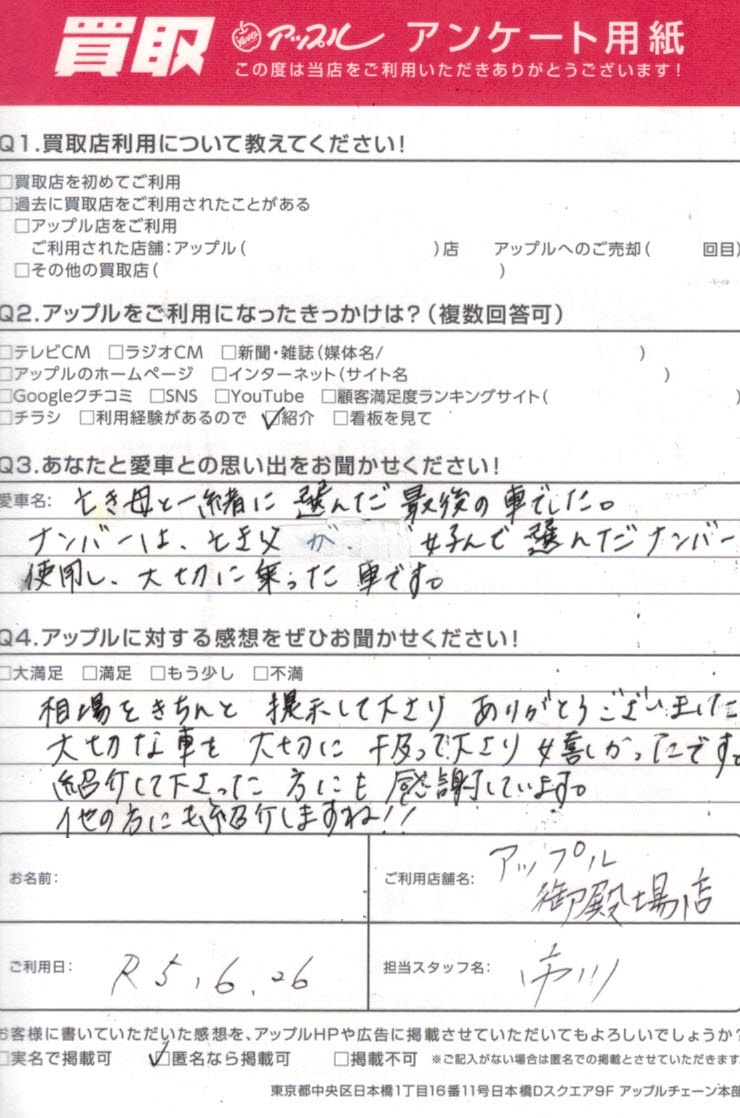 買取 アップル アンケート用紙
この度は当店をご利用いただきありがとうございます！
Q1.買取店利用について教えてください！
□買取店を初めてご利用
□過去に買取店をご利用されたことがある
□アップル店をご利用
ご利用された店舗：アップル（ ）店 アップルへのご売却（ 回目）
□その他の買取店（ ）
Q2.アップルをご利用になったきっかけは？（複数回答可）
□テレビCM □ラジオCM □新聞・雑誌（媒体名/ ）
□アップルのホームページ □インターネット（サイト名 ）
□Googleクチコミ □SNS □YouTube □顧客満足度ランキングサイト（ ）
□チラシ □利用経験があるので ☑紹介 □看板を見て
Q3.あなたと愛車との思い出をお聞かせください！
愛車名： 亡き母と一緒に選んだ最後の車でした。
ナンバーは、亡き父が 好んで選んだナンバー
使用し、大切に乗った車です。
Q4.アップルに対する感想をぜひお聞かせください！
□大満足 □満足 □もう少し □不満
相場をきちんと提示して下さりありがとうございました
大切な車を大切に扱って下さり嬉しかったです。
紹介して下さった方にも感謝しています。
他の方にも紹介しますね!!
お名前： ご利用店舗名： アップル
御殿場店
ご利用日： R5.6.26 担当スタッフ名： 市川
お客様に書いていただいた感想を、アップルHPや広告に掲載させていただいてもよろしいでしょうか？
□実名で掲載可 ☑匿名なら掲載可 □掲載不可 ※ご記入がない場合は匿名での掲載とさせていただきます
東京都中央区日本橋1丁目16番11号日本橋Dスクエア9F アップルチェーン本部